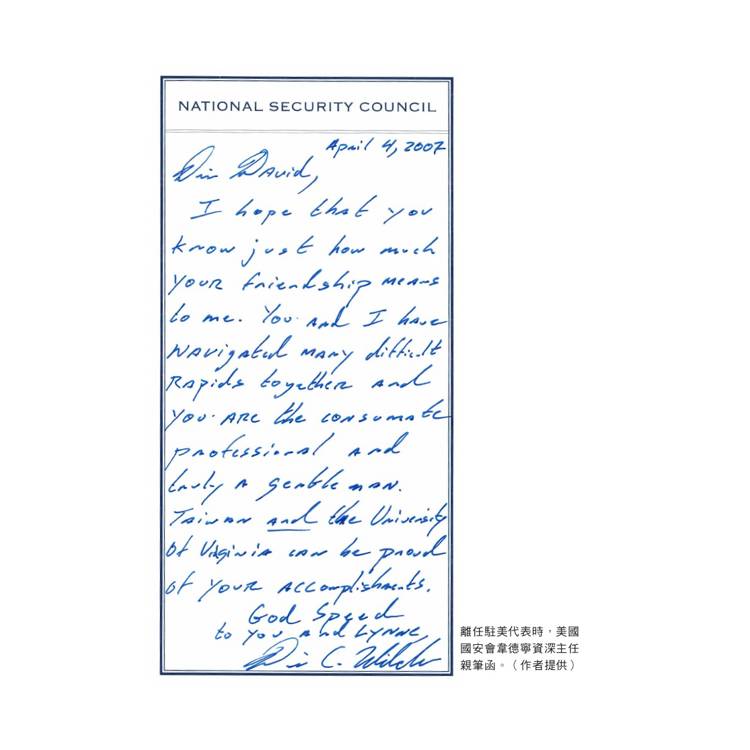 NATIONAL SECURITY COUNCIL
April 4, 2007
Dear David,
I hope that you
know just how much
your friendship means
to me. You and I have
navigated many difficult
rapids together and
you are the consumate
professional and
truly a gentleman.
Taiwan and the University
of Virginia can be proud
of your accomplishments.
God Speed
to you and Lynne,
C.
離任駐美代表時,美國
國安會韋德寧資深主任
親筆函。(作者提供)